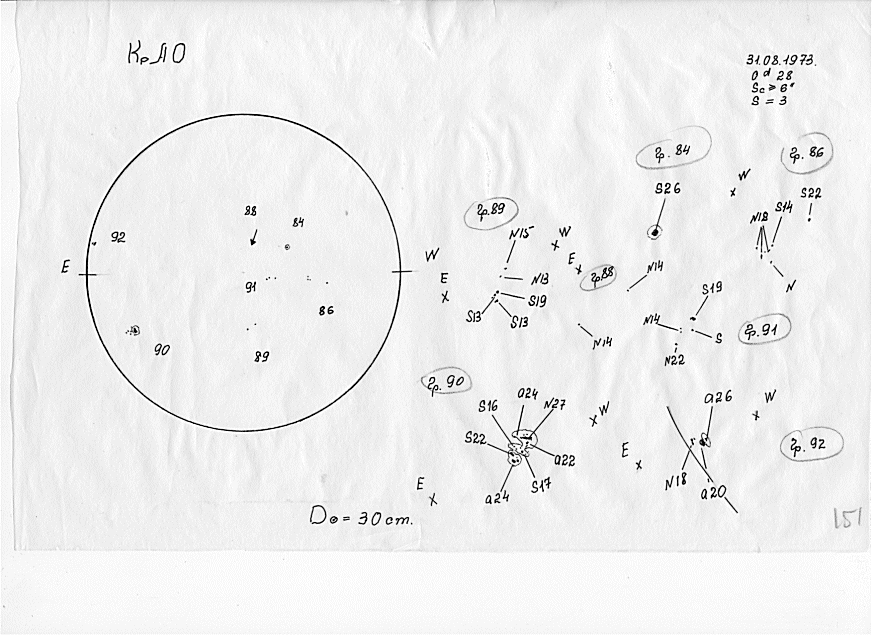 КрАО
31.08.1973.
0 d 28
Sc ≥ 6"
S = 3
88
84
92
E
W
91
86
90
89
D⊙ = 30 cm.
гр.89
N15
W
E
N13
S19
S13
S13
гр.88
E
W
N14
N14
гр.84
S26
гр.86
N18
S14
S22
N
гр.91
S19
N14
S
N22
гр.90
S16
a24
N27
W
S22
a22
a24
S17
E
гр.92
a26
W
E
N18
a20
151